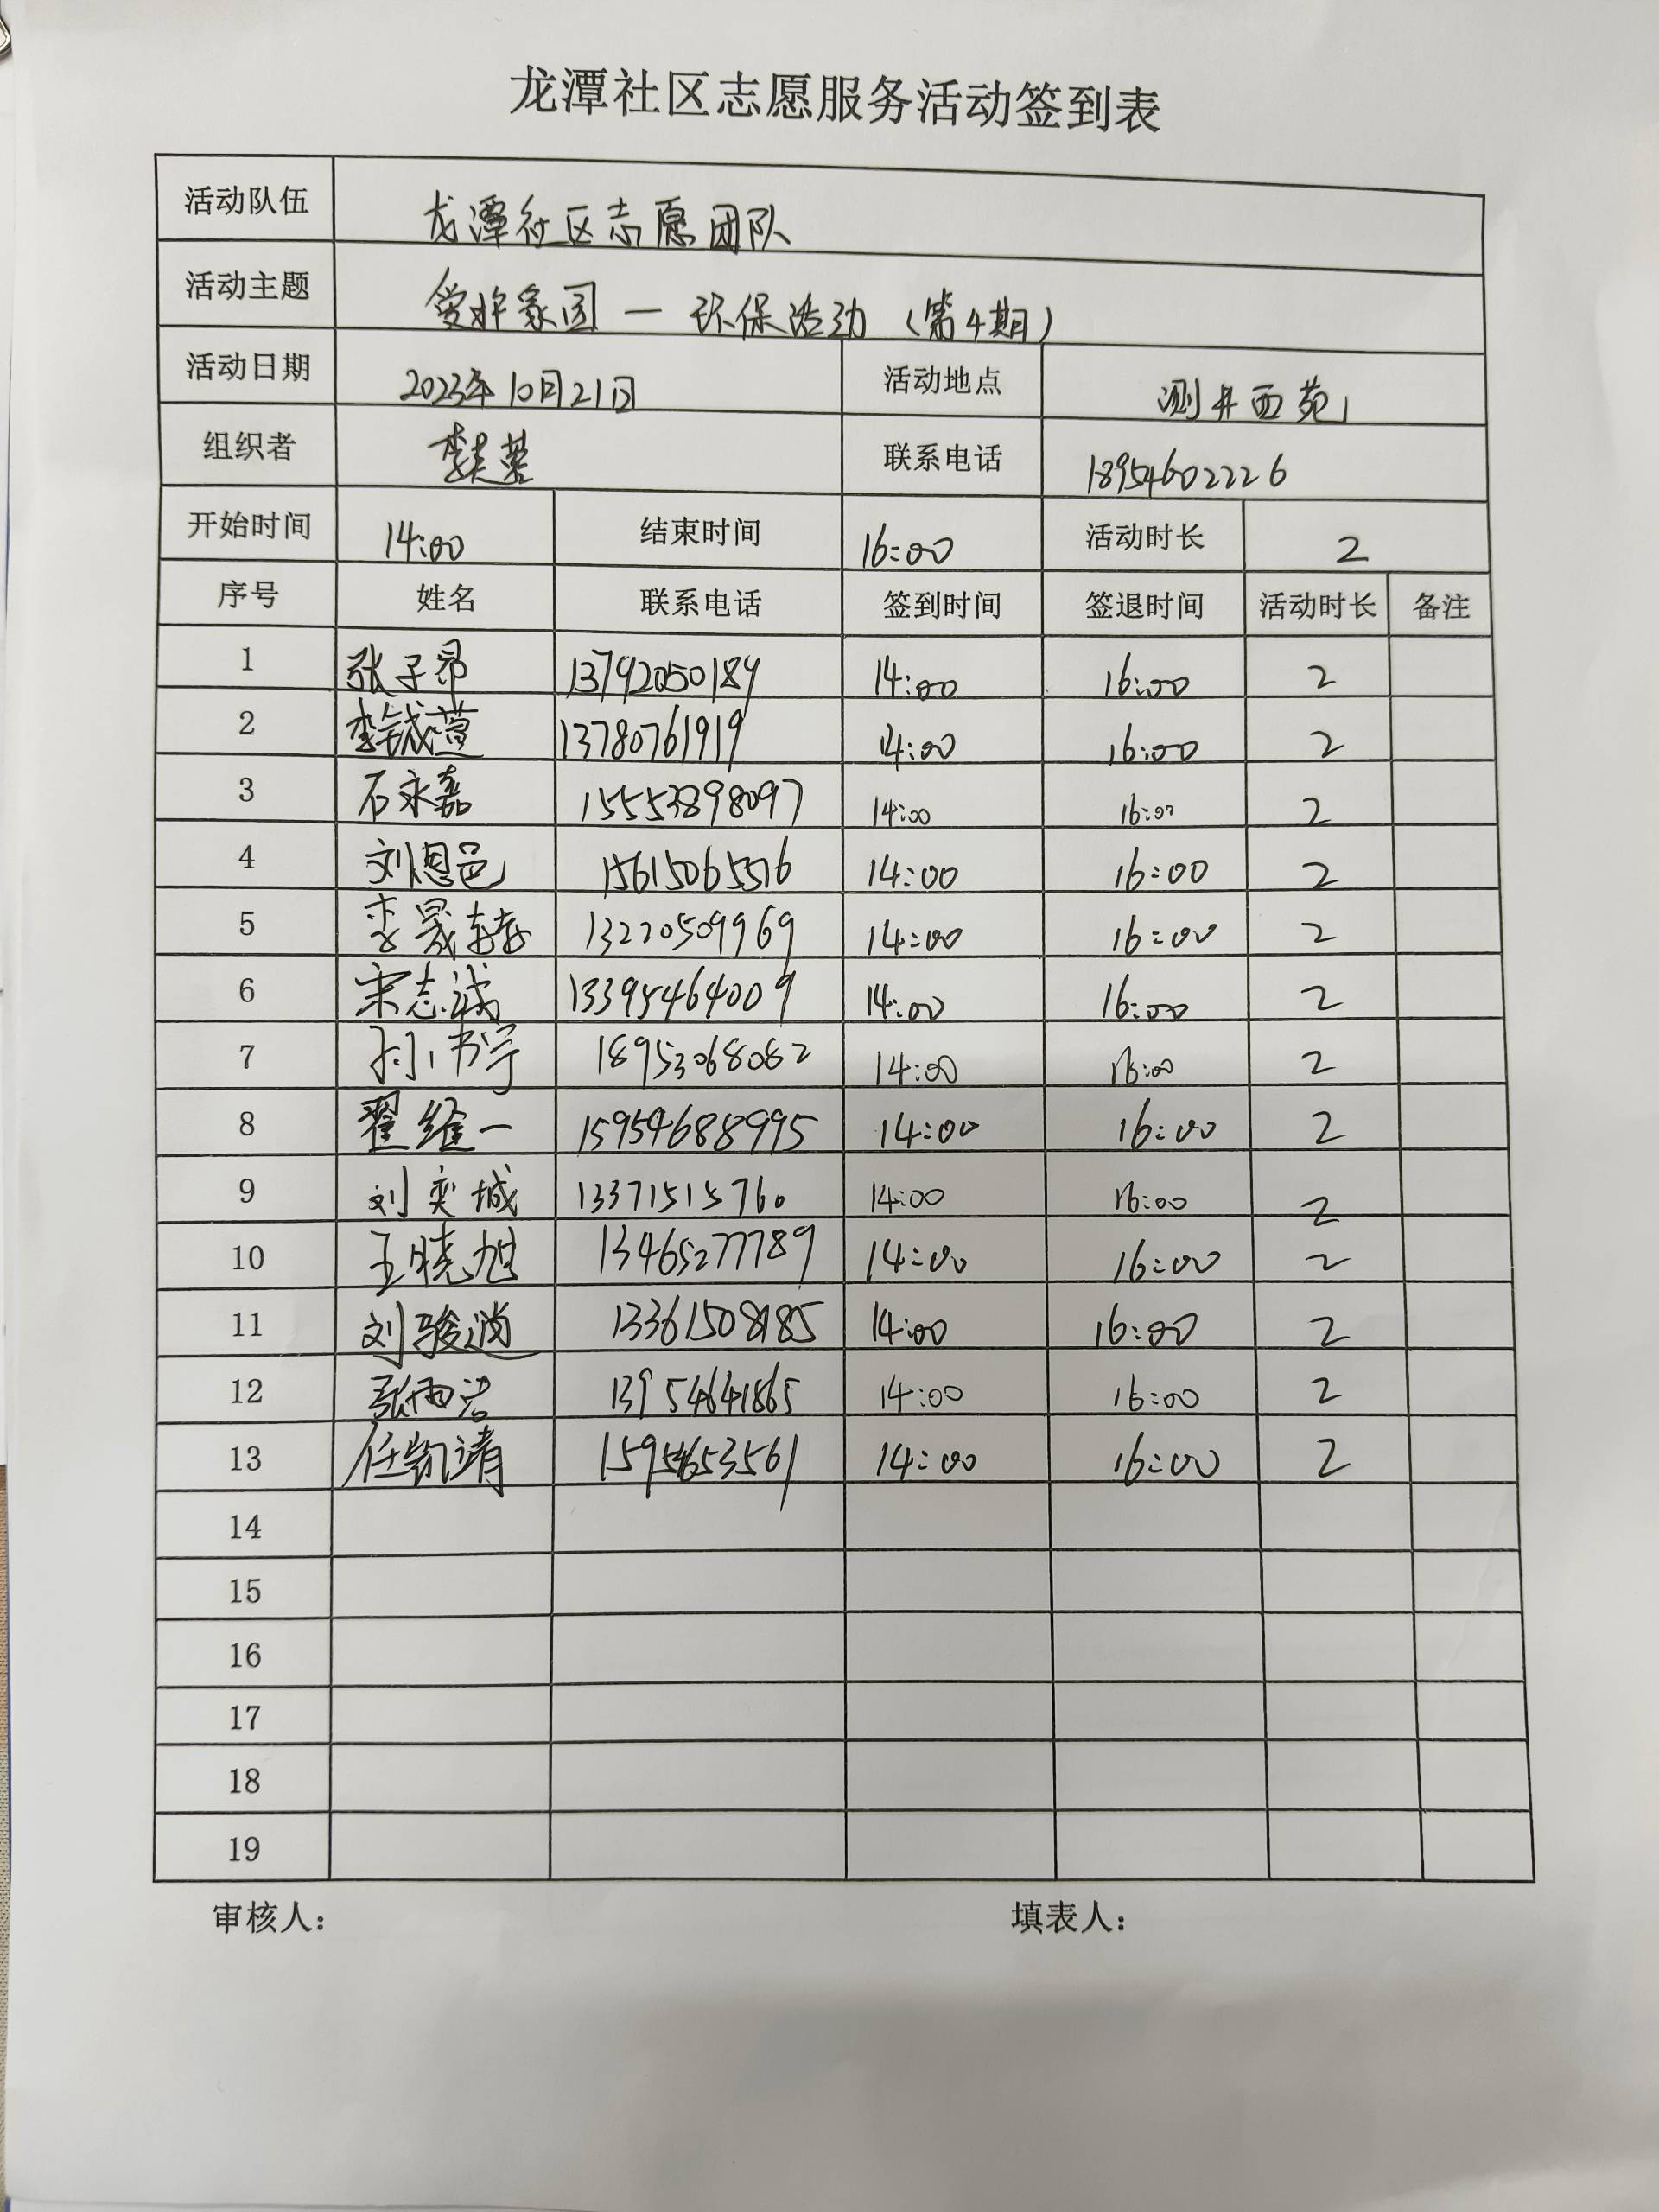 龙潭社区志愿服务活动签到表
活动队伍 龙潭社区志愿团队
活动主题 爱护家园一环保活动(第4期)
活动日期 2023年10月21日 活动地点 测井西苑
组织者 联系电话 18954602226
开始时间 14:00 结束时间 16:00 活动时长 2
序号 姓名 联系电话 签到时间 签退时间 活动时长 备注
1 张子昂 13792050189 14:00 16:00 2
2 李铖萱 13780761919 14:00 16:00 2
3 石永嘉 15553898097 14:00 16:00 2
4 刘恩邑 14:00 16:00 2
5 13220509969 14:00 16:00 2
6 宋志诚 13395464009 14:00 16:00 2
7 孙书宇 18953068082 14:00 16:00 2
8 翟维一 15954688995 14:00 16:00 2
9 刘奕城 13371515760 14:00 16:00 2
10 王晓旭 13465277789 14:00 16:00 2
11 14:00 16:00 2
12 张雨洁 13954641865 14:00 16:00 2
13 任凯靖 15954653561 14:00 16:00 2
14
15
16
17
18
19
审核人: 填表人: